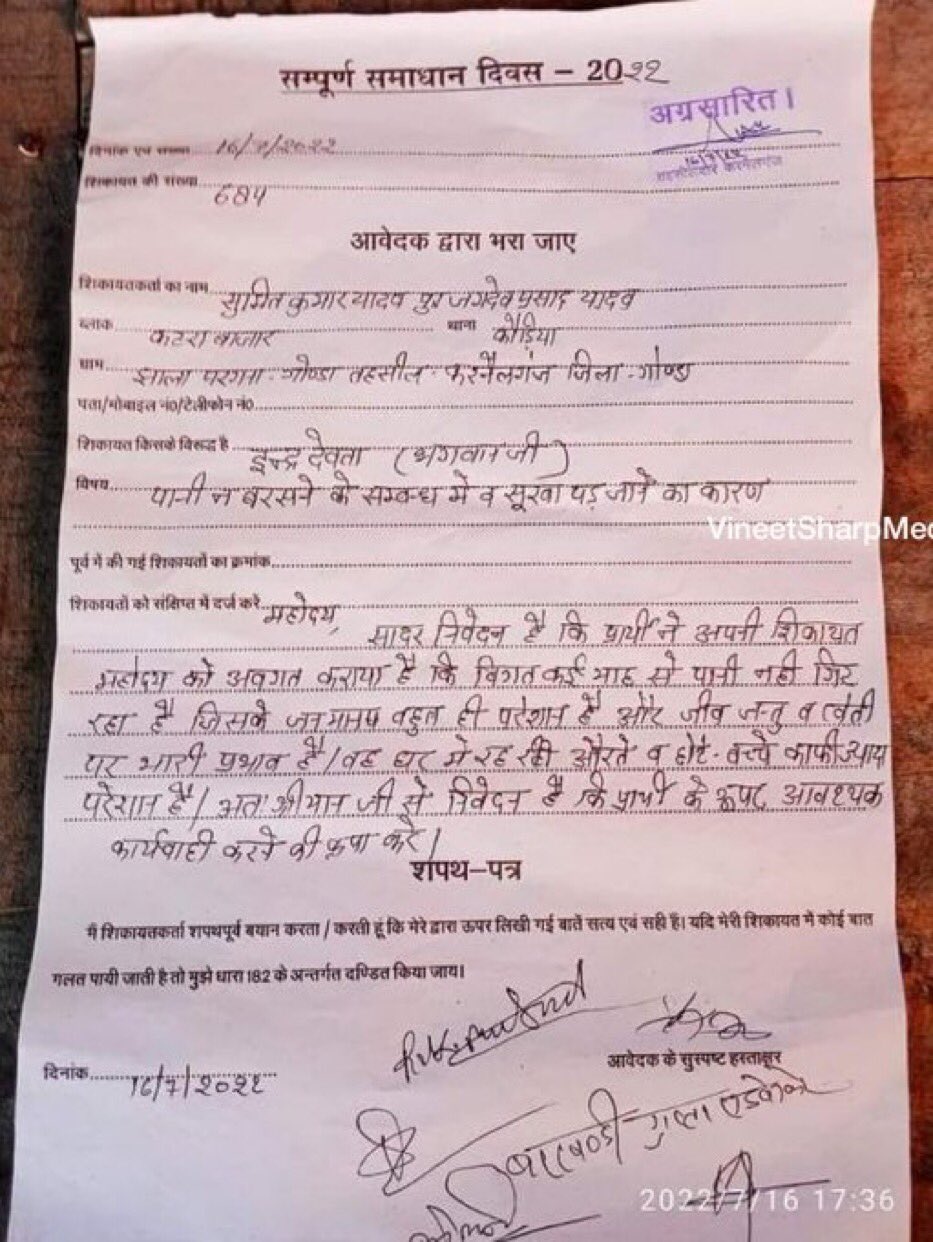 सम्पूर्ण समाधान दिवस – 2022
अग्रसारित।
दिनांक एवं संख्या 16/7/2022
शिकायत की संख्या 684
आवेदक द्वारा भरा जाए
शिकायतकर्ता का नाम सुमित कुमार यादव पुत्र जगदेव प्रसाद यादव
ब्लाक कटरा बाजार थाना कौड़िया
ग्राम झाला परगना - गोण्डा तहसील - करनैलगंज जिला - गोण्डा
पता/मोबाइल नं0/टेलीफोन नं0
शिकायत किसके विरूद्ध है इन्द्र देवता (भगवान जी)
विषय पानी न बरसने के सम्बन्ध में व सूखा पड़ जाने का कारण
VineetSharpMed
पूर्व में की गई शिकायतों का क्रमांक
शिकायतों को संक्षिप्त में दर्ज करे महोदय,
सादर निवेदन है कि प्रार्थी ने अपनी शिकायत
महोदय को अवगत कराया है कि विगत कई माह से पानी नही गिर
रहा है जिसके जनमानष बहुत ही परेशान है और जीव जन्तु व खेती
पर भारी प्रभाव है। वह घर में रह रही औरते व छोटे-बच्चे काफी
परेशान है। अतः श्रीमान जी से निवेदन है कि प्रार्थी के ऊपर आवश्यक
कार्यवाही करने की कृपा करे।
शपथ-पत्र
मै शिकायतकर्ता शपथपूर्व बयान करता / करती हूं कि मेरे द्वारा ऊपर लिखी गई बातें सत्य एवं सही है। यदि मेरी शिकायत में कोई बात
गलत पायी जाती है तो मुझे धारा 182 के अन्तर्गत दण्डित किया जाय।
आवेदक के सुस्पष्ट हस्ताक्षर
दिनांक 16/7/2022
गुप्ता एडवोकेट
2022/7/16 17:36